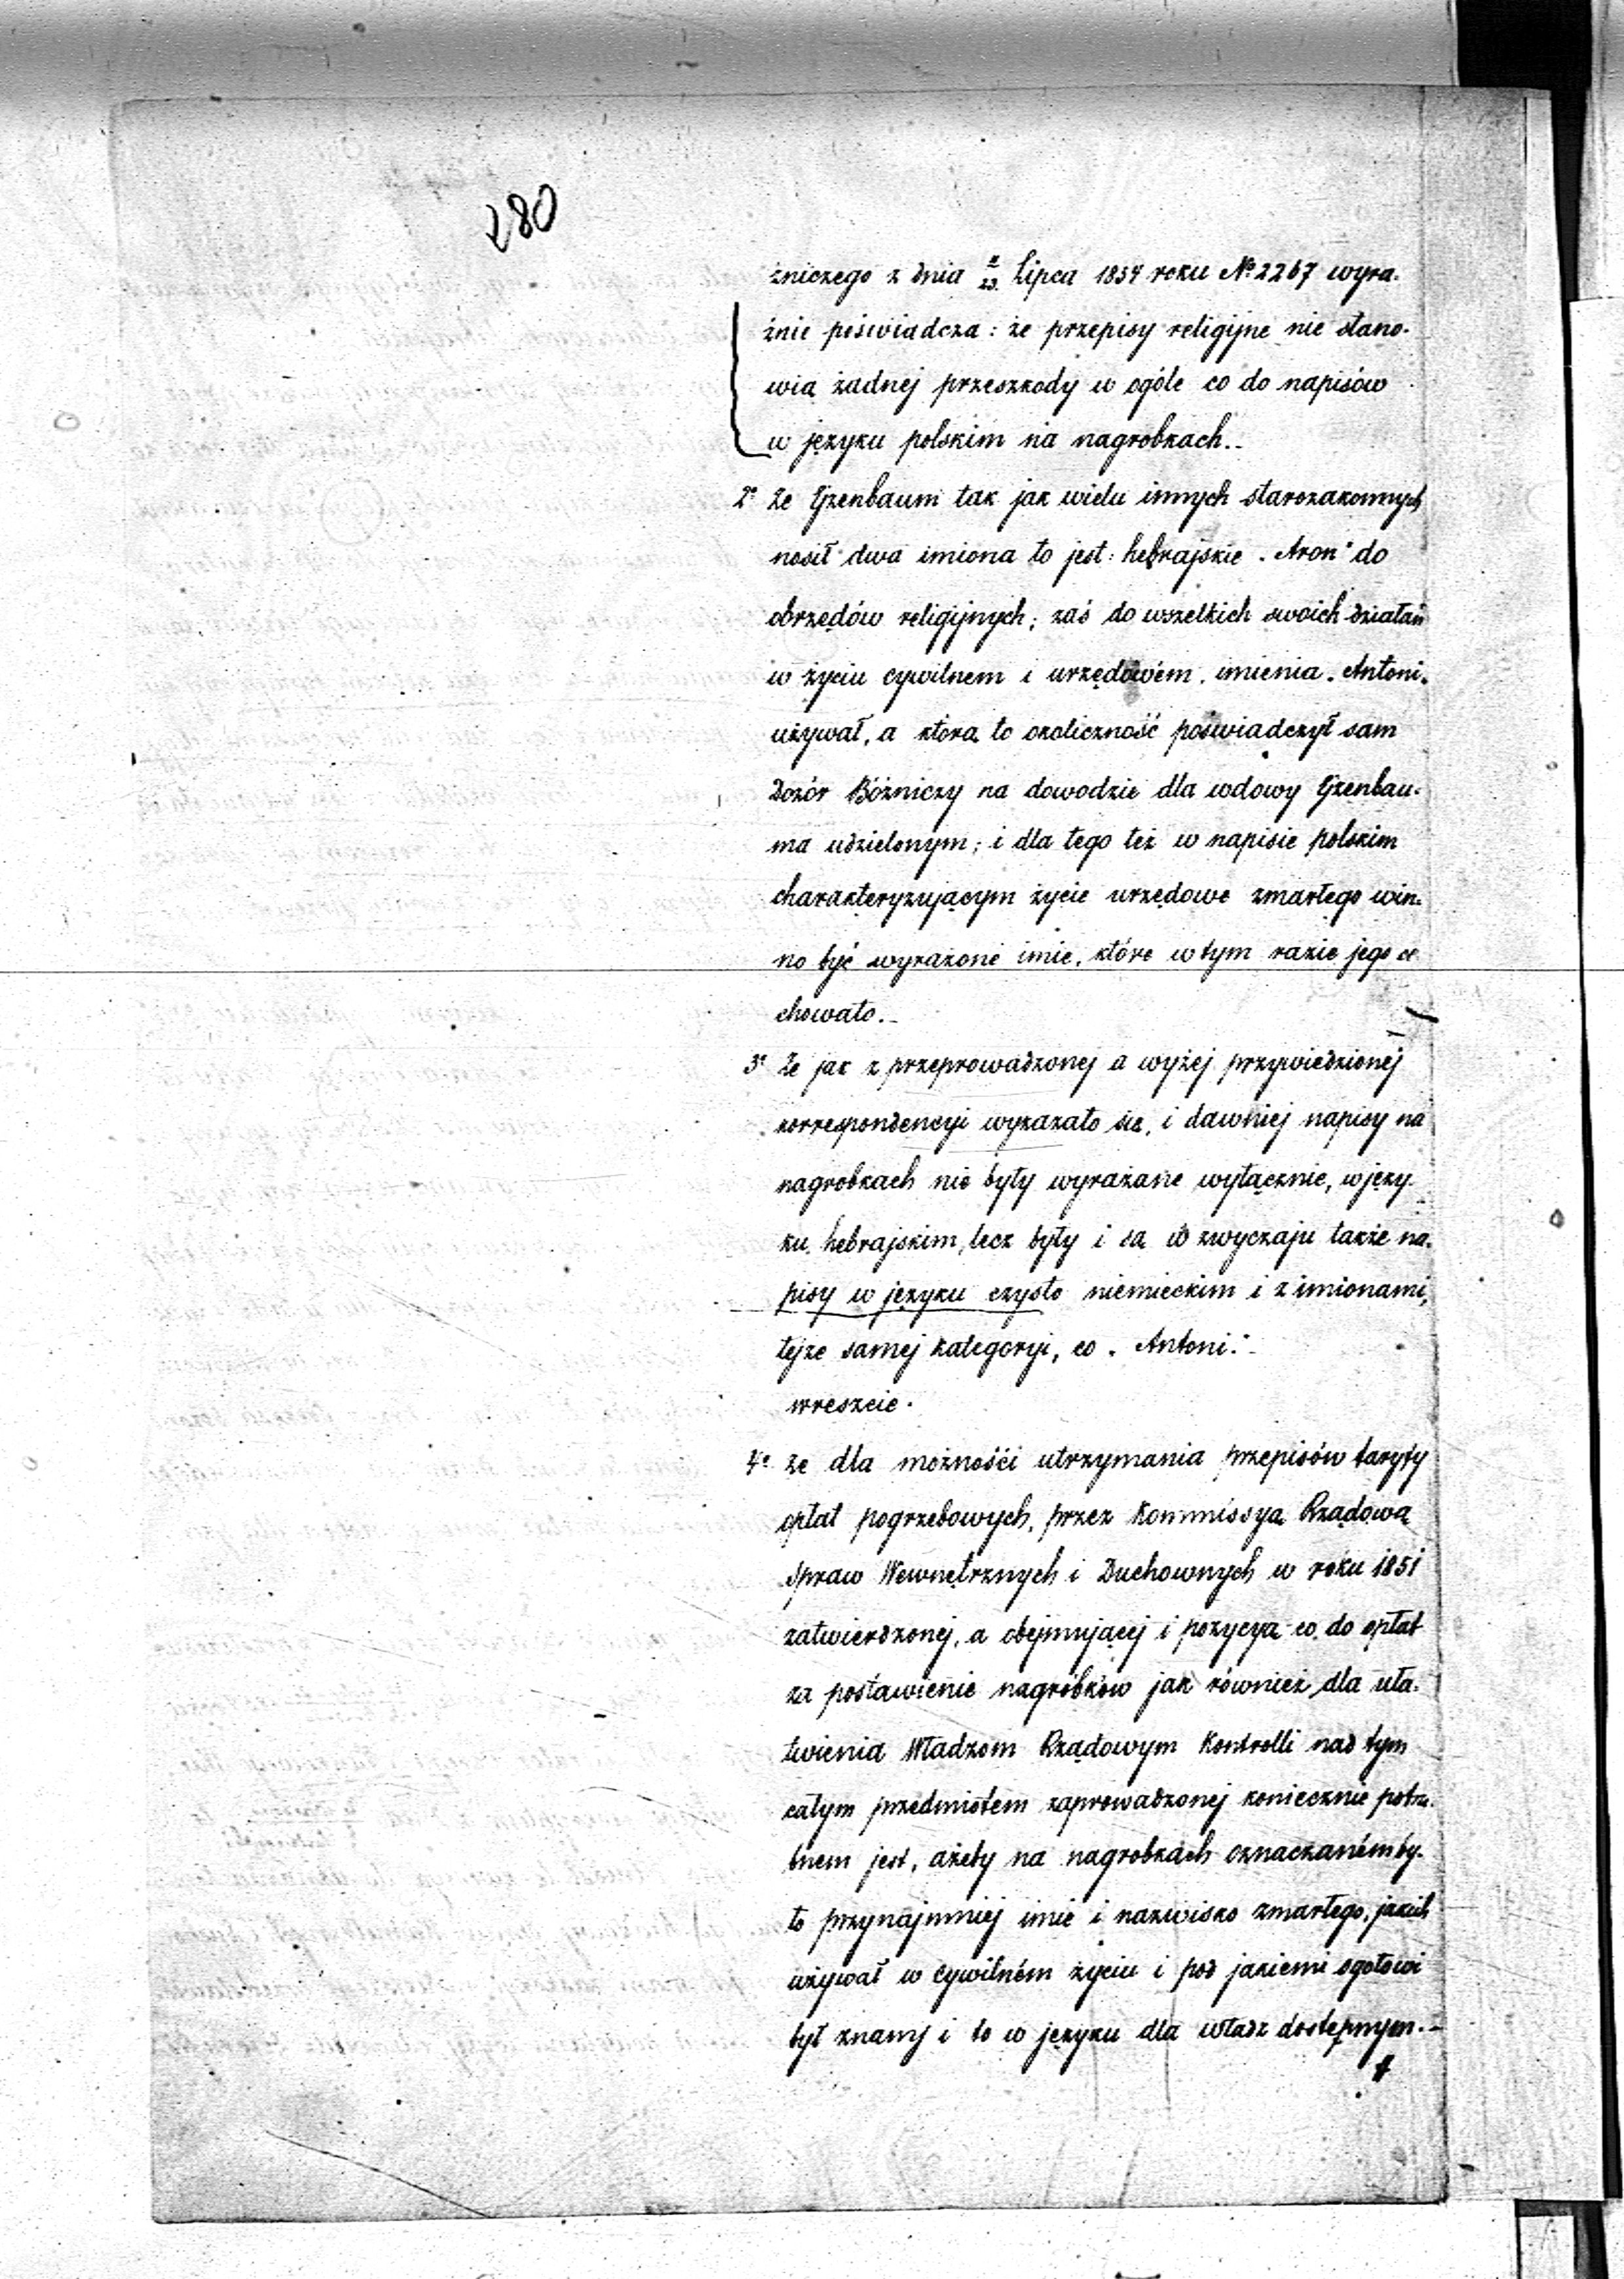 280
źniczego z dnia 11/23 Lipca 1854 roku № 2267 wyra-
źnie poświadcza: że przepisy religijne nie stano-
wią żadnej przeszkody w ogóle co do napisów
w języku polskim na nagrobkach.-
2° Że Gzenbaum tak jak wielu innych starozakonnych
nosił dwa imiona to jest: hebrajskie „Aron" do
obrzędów religijnych; zaś do wszelkich swoich działań
w życiu cywilnem i urzędowém, imienia „Antoni„
używał, a którą to okoliczność poświadczył sam
Dozór Bóżniczy na dowodzie dla wdowy Gzenbau-
ma udzielonym; i dla tego też w napisie polskim
charakteryzującym życie urzędowe zmarłego win-
no być wyrażone imie, które w tym razie jego ce
chowało.-
3° Że jak z przeprowadzonej a wyżej przywiedzionej
korrespondencyi wykazało się, i dawniej napisy na
nagrobkach nie były wyrażane wyłącznie, w języ-
ku hebrajskim, lecz były i są w zwyczaju także na-
pisy w języku czysto niemieckim i z imionami,
tejże samej kategoryi, co „Antoni".-
wreszcie.
4° że dla możności utrzymania przepisów taryfy
opłat pogrzebowych, przez Kommissyą Rządową
Spraw Wewnętrznych i Duchownych w roku 1851
zatwierdzonej, a obejmującej i pozycyą co do opłat
za postawienie nagrobków jak również dla uła-
twienia Władzom Rządowym Kontrolli nad tym
całym przedmiotem zaprowadzonej koniecznie potrze-
bnem jest, ażeby na nagrobkach oznaczaném by-
ło przynajmniej imie i nazwisko zmarłego, jakich
używał w cywilném życiu i pod jakiemi ogołowi
był znany i to w języku dla władz dostępnym.-